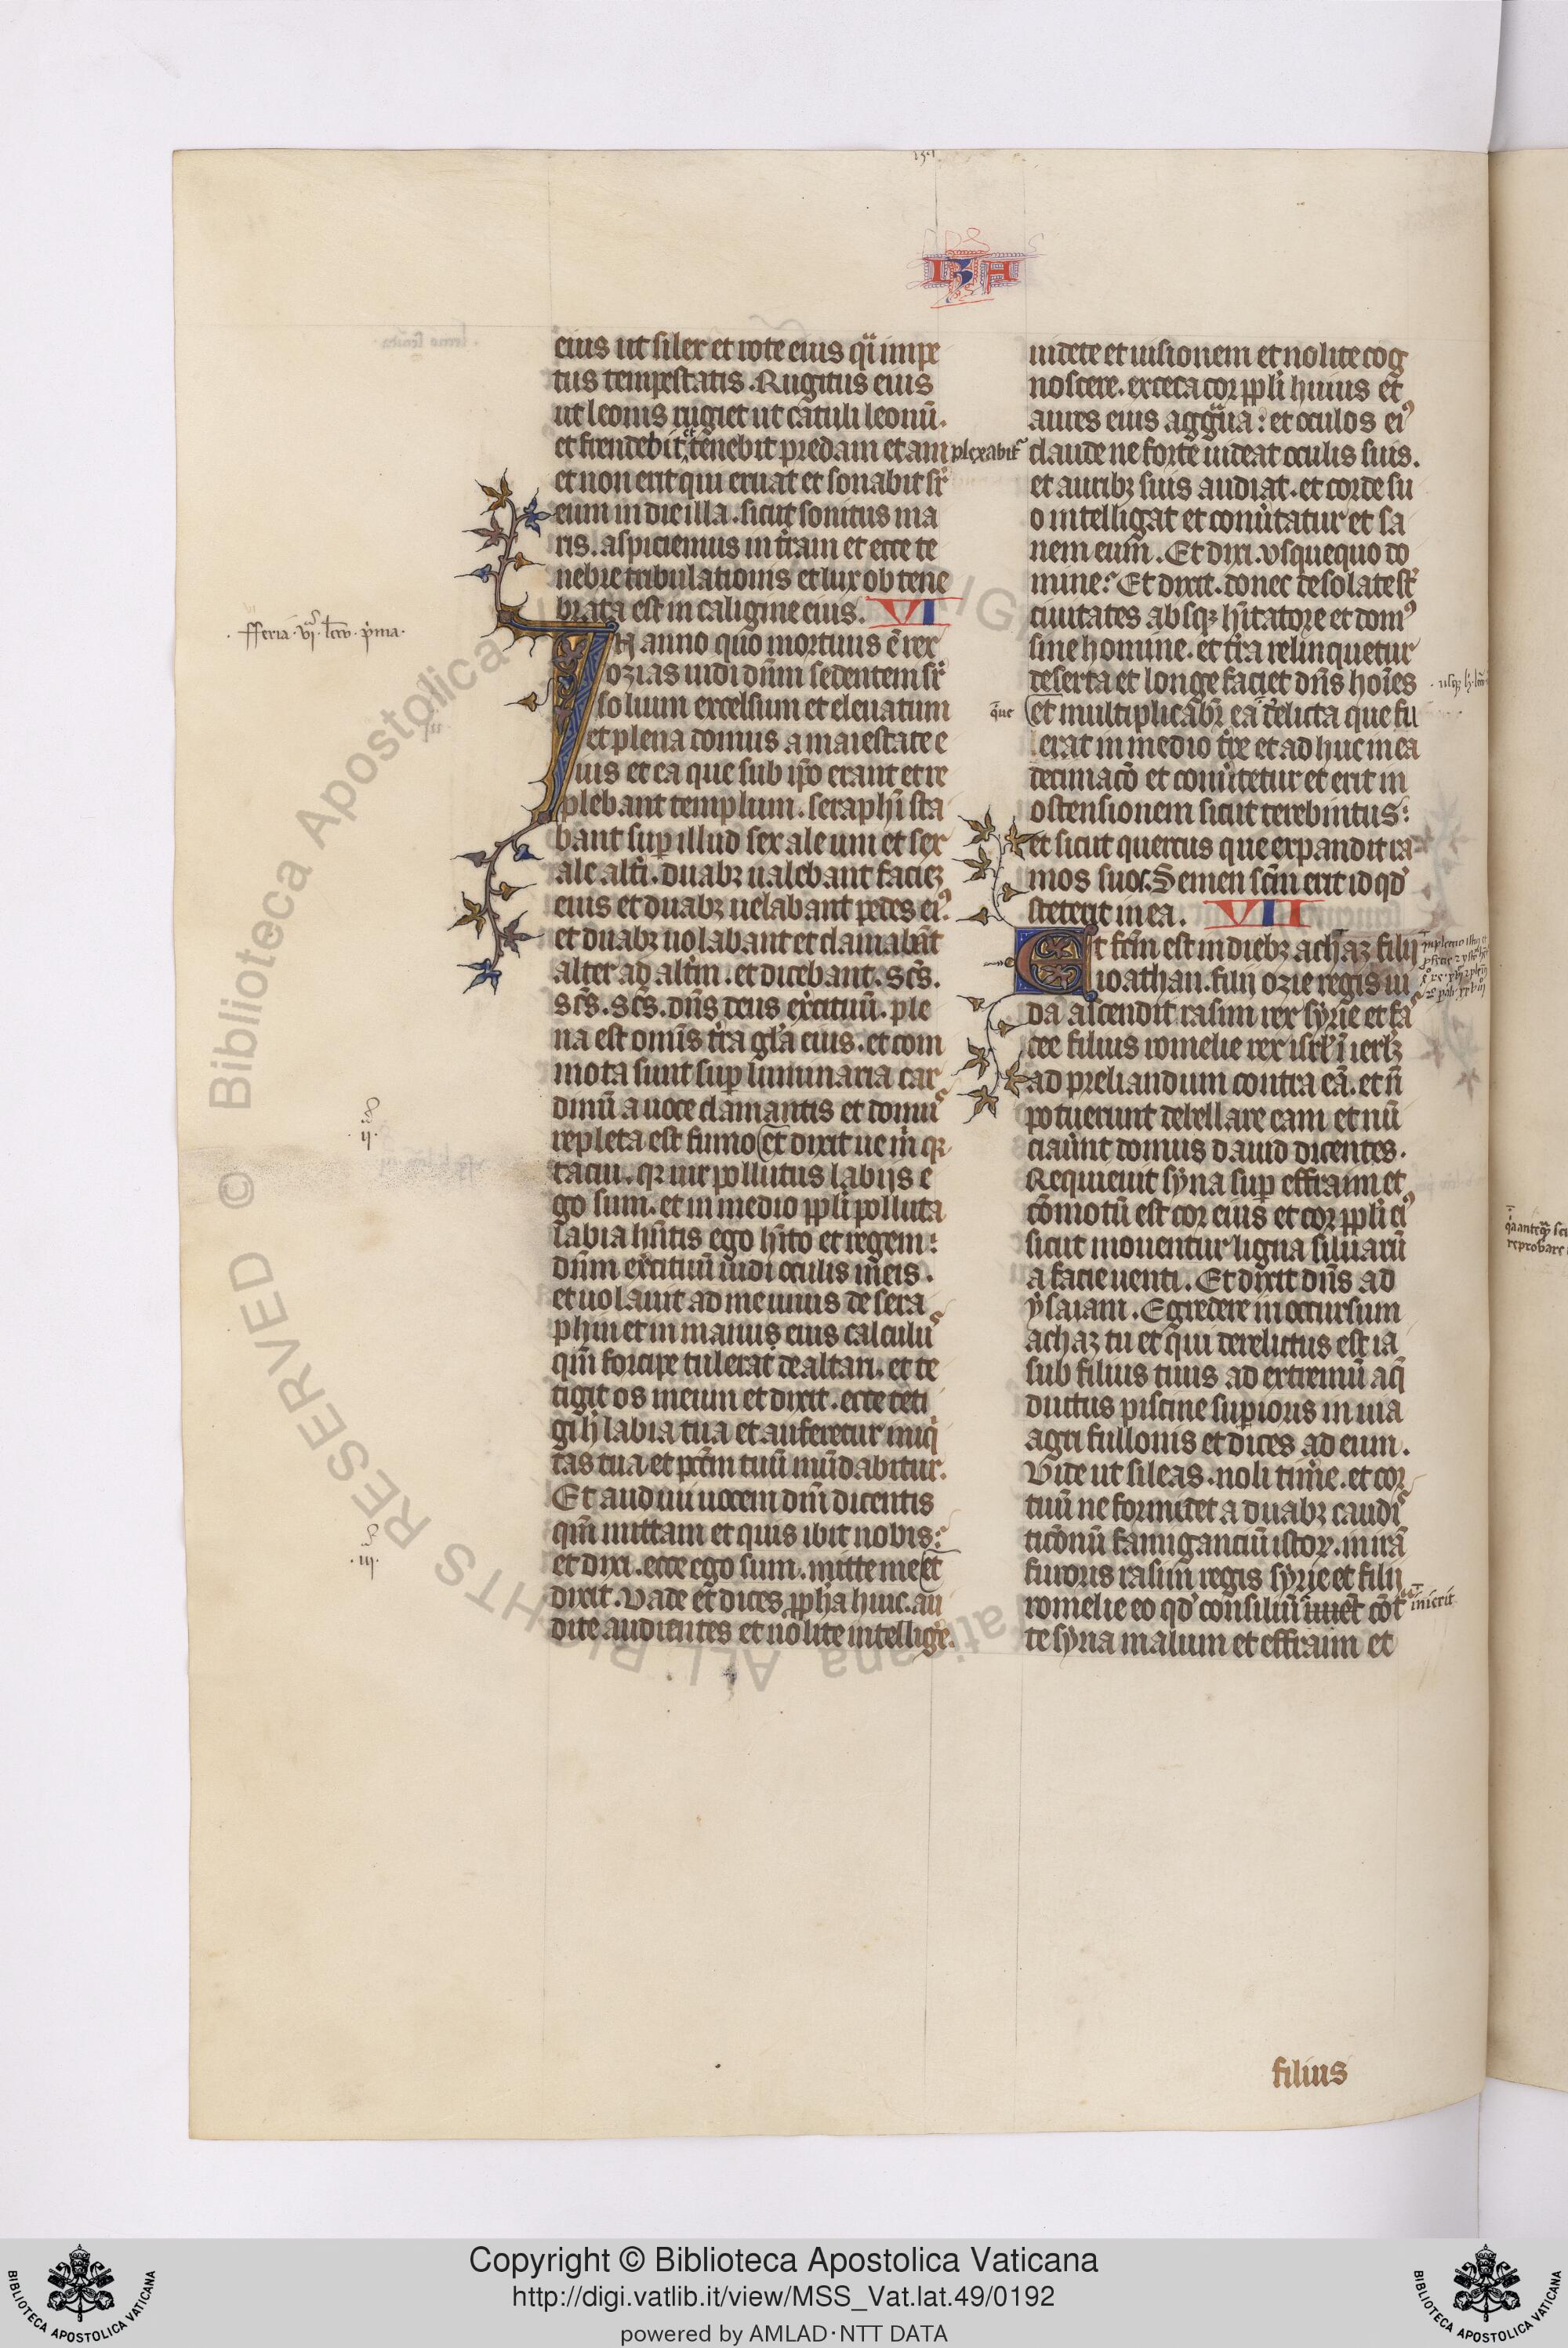 IZA
eius ut silex et rote eius qͣi impe
tus tempestatis. Rugitus eius
ut leonis rugiet ut catuli leonū.
et frendebit et tenebit predam et am plexabit᷑
et non erit qui eruat et sonabit sr̄
eum in die illa. sicut sonitus ma
ris. aspiciemus in t̄ram et ecce te
nebre tribulationis et lux obtene
brata est in caligine eius. VI
.fferia .vjͣ. lcc̄o. p̄ma.
IN anno quo mortuus ē rex
ozias uidi dn̄m sedentem sr̄
solium excelsum et eleuatum
et plena domus a maiestate e
ius et ea que sub ip̄o erant et re
plebant templum. seraphī sta
bant suꝑ illud sex ale uni et sex
ale alt̄i. duabꝫ ualebant facieꝫ
eius et duabꝫ uelabant pedes ei᷒.
et duabꝫ uolabant et clamabāt
alter ad alt̄m. et dicebant. sc̄s.
sc̄s. sc̄s. dn̄s deus ex̄cituū. ple
na est omīs t̄ra gl̄a eius. et com
mota sunt suꝑ liminaria car
dinū a uoce clamantis et domus
.ij.
repleta est fumo et dixit ue m̄ qꝛ
tacui. qꝛ uir pollutus labijs e
go sum. et in medio ppl̄i polluta
labia hn̄tis ego hīto et regem:
dn̄m ex̄cituū uidi oculis meis.
et uolauit ad me unus de sera
phin et in manus eius calculus
qm̄ forcipe tulerat de altari. et te
tigit os meum et dixit. ecce teti
gi h̄ labia tua et auferetur iniq̄
tas tua et pc̄tm̄ tuū mūdabitur.
Et audiui uocem dn̄i dicentis
qm̄ mittam et quis ibit nobis:
.iij.
et dixi. ecce ego sum. mitte me et
dixit. Vade et dices pph̄a huic. au
dite audientes et nolite intellige᷑.
uidete et uisionem et nolite cog
noscere. exceca cor ppl̄i huius et
aures eius aggͣua: et oculos ei᷒
claude ne forte uideat oculis suis.
et auribꝫ suis audiat. et corde su
o intelligat et conūtatur et sa
nem eum. Et dixi. vsquequo do
mine: Et dixit. donec desolate st̄
ciuitates absqꝫ hītatore et dom᷒
sine homine. et t̄ra relinquetur
deserta et longe faciet dn̄s hoīes
q̄ue
et multiplicabr̄ ea derelicta que fu
erat in medio t̄re et adhuc in ea
decimacō et conūtetur et erit in
ostensionem sicut terebintus:
et sicut quercus que expandit ra
mos suos. Semen sc̄m erit id qd̄
steterit in ea. VII
Et fc̄m est in diebꝫ achaꝫ filij
ioathan. filij ozie regis iu
da ascendit rasim rex syrie et fa
cee filius romelie rex isrl̄ ī ierl̄ꝫ
ad preliandum contra eā. et n̄
potuerunt debellare eam et nū
ciaūnt domus dauid dicentes.
Requieuit syria suꝑ effraim et
cōmotū est cor eius et cor ppl̄i ei᷒
sicut mouentur ligna siluarū
a facie uenti. Et dixit dn̄s ad
ysaiam. Egredere in occursum
achaꝫ tu et qui derelictus est ia
sub filius tuus ad extremū aq̄
ductus piscine suꝑioris in uia
agri fullonis et dices ad eum.
Vide ut sileas. noli tim̄e. et cor
tuū ne formidet a duabꝫ caudis
ticōnū famiganciū istoꝝ. in irā
furoris rasim regis syrie et filij
romelie eo qd̄ consiliū cōt inierit
te syria malum et effraim et
filius
Copyright © Biblioteca Apostolica Vaticana
http://digi.vatlib.it/view/MSS_Vat.lat.49/0192
powered by AMLAD·NTT DATA
BIBLIOTECA APOSTOLICA VATICANA
BIBLIOTECA APOSTOLICA VATICANA